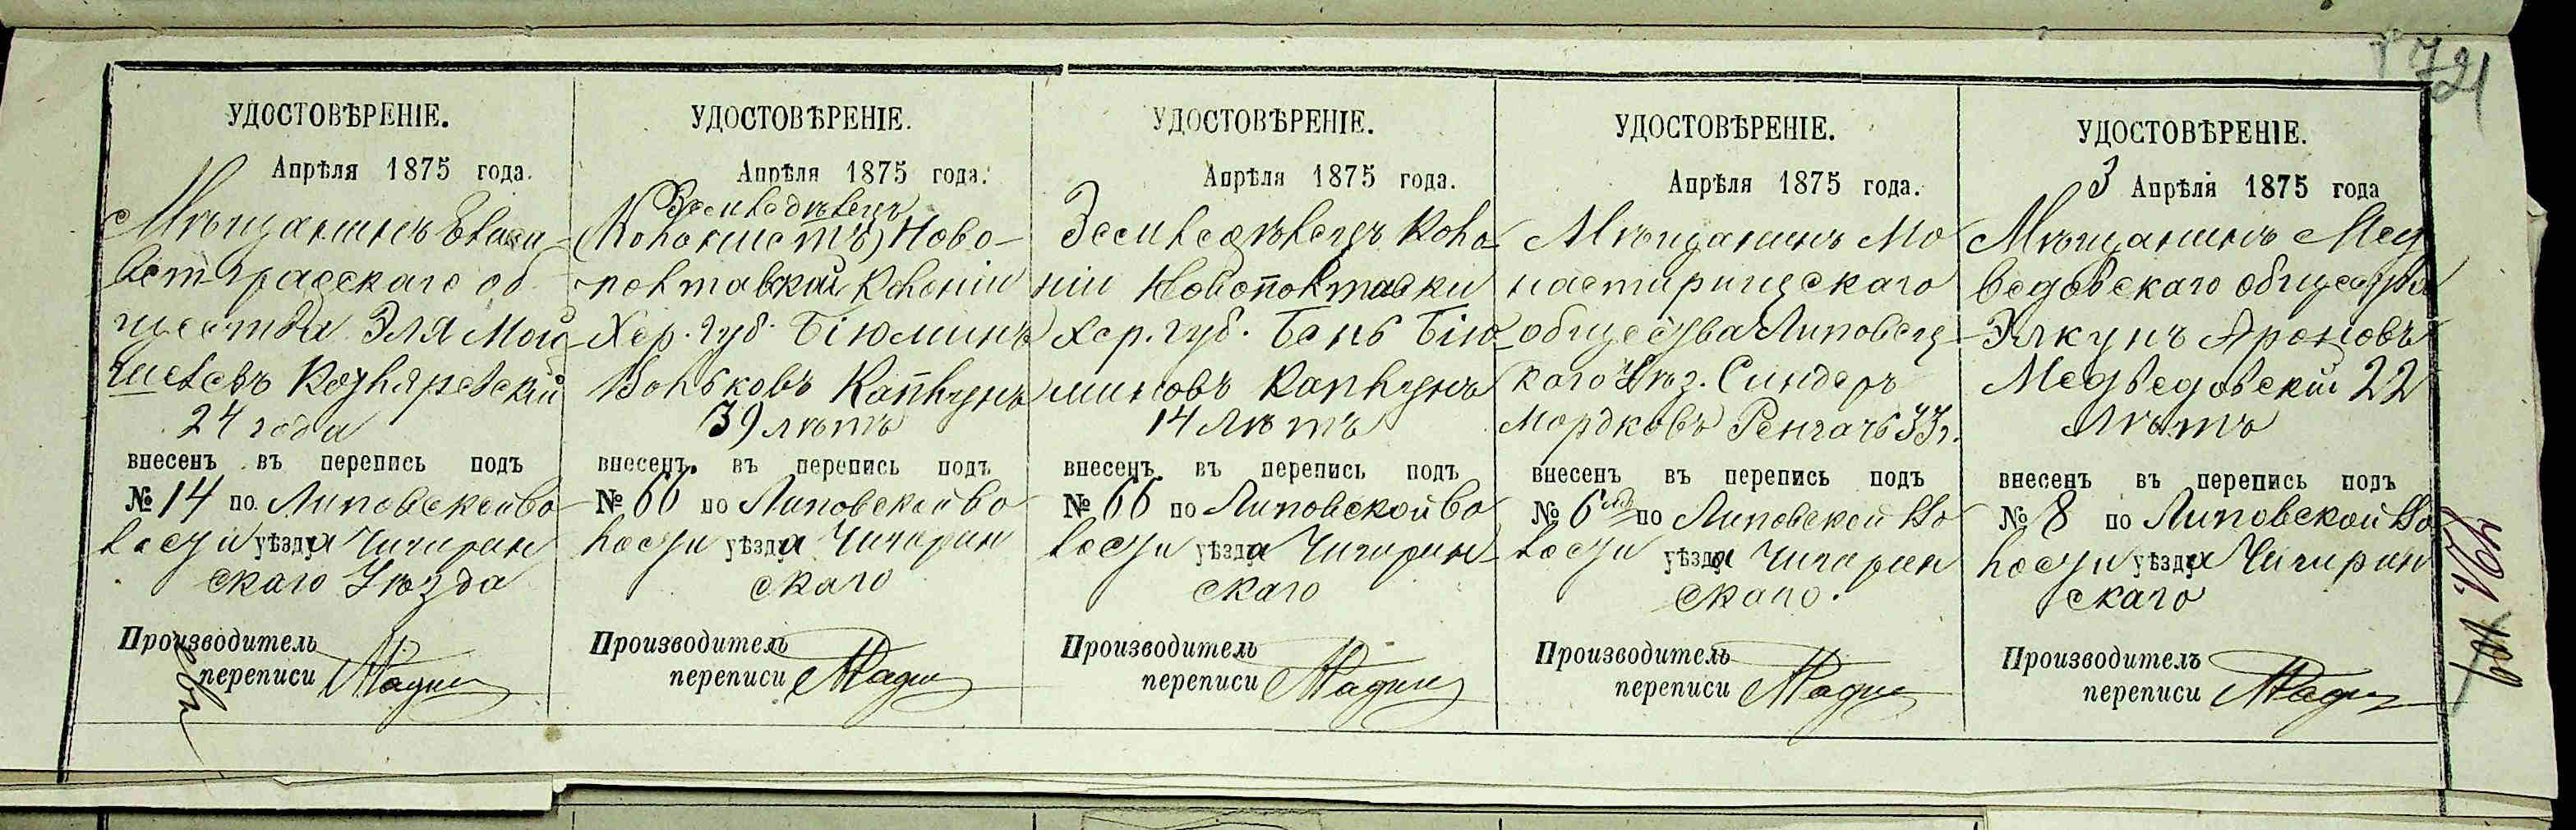 721
УДОСТОВѢРЕНІЕ.
Апрѣля 1875 года.
Мѣщанинъ Елиса-
ветградскаго об
щества Эля Мой-
шевъ
24 года
внесенъ въ перепись подъ
№ 14 по Липовской во
лости уѣзда Чигирин
скаго Уѣзда
Производитель
переписи
УДОСТОВѢРЕНІЕ.
Апрѣля 1875 года.
Земледѣлецъ
(Колонистъ) Ново-
полтавской Колоніи
Хер. губ. Біюминъ
Вольковъ Каплунъ
39 лѣтъ
внесенъ въ перепись подъ
№ 66 по Липовской во
лости уѣзда Чигирин
скаго
Производитель
переписи
УДОСТОВѢРЕНІЕ.
Апрѣля 1875 года.
Земледѣлецъ Коло-
ніи Новополтавки
Хер. губ. Бень Бію-
миновъ Каплунъ
14 лѣтъ
внесенъ въ перепись подъ
№ 66 по Липовской во
лости уѣзда Чигирин-
скаго
Производитель
переписи
УДОСТОВѢРЕНІЕ.
Апрѣля 1875 года.
Мѣщанинъ Мо
настырищскаго
общества Липовец-
каго Уѣз. Синдеръ
Мордковъ Ренгачъ 33 г.
внесенъ въ перепись подъ
№ 6 по Липовской Во
лости уѣзда Чигирин
скаго.
Производитель
переписи
УДОСТОВѢРЕНІЕ.
3 Апрѣля 1875 года
Мѣщанинъ Мед
ведовскаго общества
Элкунъ Ароновъ
Медведовскій 22
лѣтъ
внесенъ въ перепись подъ
№ 8 по Липовской Во
лости уѣзда Чигирин
скаго
Производитель
переписи